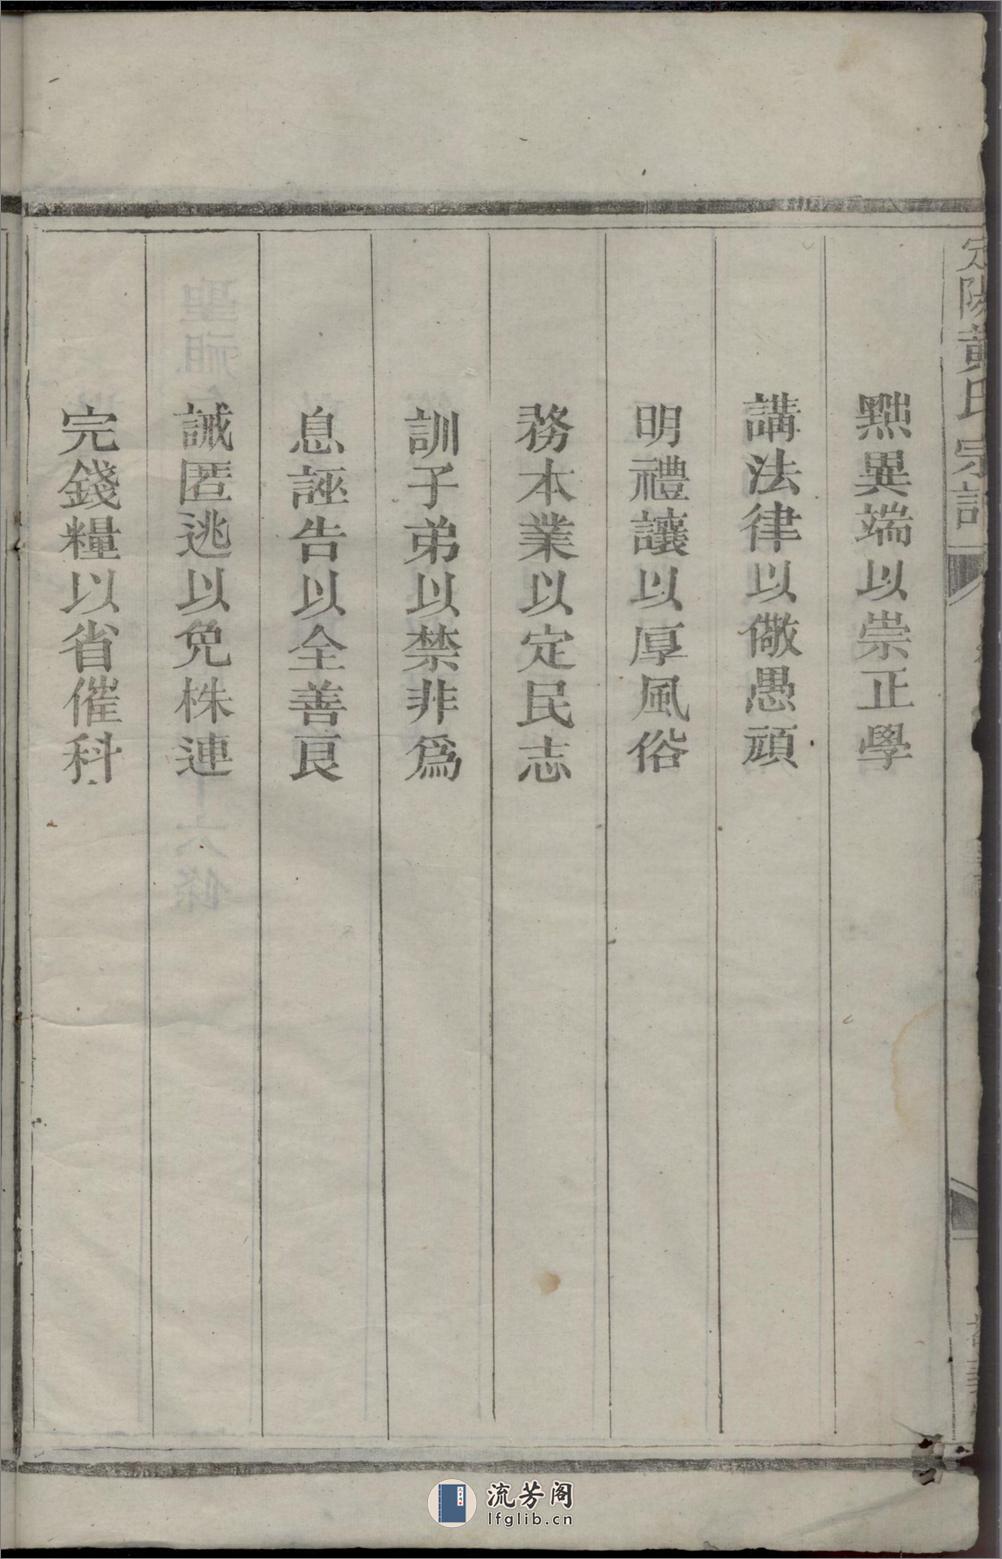 黜異端以崇正學
講法律以儆愚頑
明禮讓以厚風俗
務本業以定民志
訓子弟以禁非爲
息誣告以全善良
誡匿逃以免株連
完錢糧以省催科
定陽黃氏宗譜
流芳阁
lfglib.cn